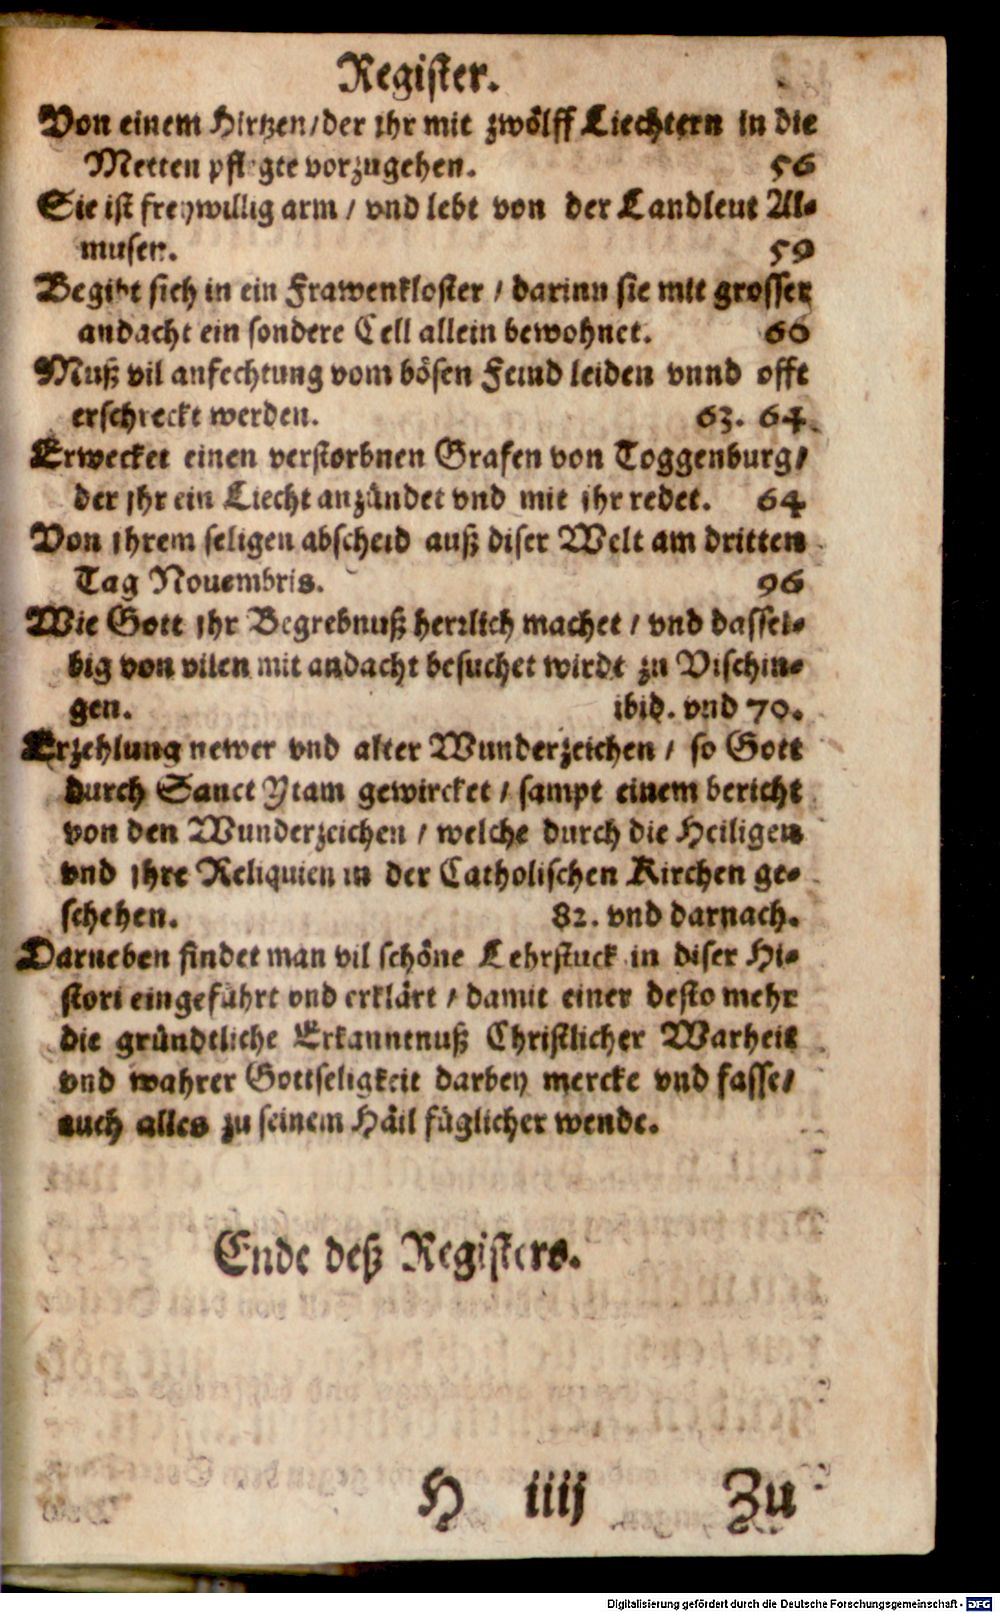 Register.
Von einem Hirtzen/der jhr mit zwölff Liechtern in die
Metten pflegte vorzugehen. 56
Sie ist freywillig arm / vnd lebt von der Landleut Al-
musen. 59
Begibt sich in ein Frawenkloster / darinn sie mit grosser
andacht ein sondere Cell allein bewohnet. 60
Muß vil anfechtung vom bösen Feind leiden vnnd offt
erschreckt werden. 63. 64.
Erwecket einen verstorbnen Grafen von Toggenburg/
der jhr ein Liecht anzündet vnd mit jhr redet. 64
Von jhrem seligen abscheid auß diser Welt am dritten
Tag Nouembris. 96
Wie Gott jhr Begrebnuß herrlich machet / vnd dassel-
big von vilen mit andacht besuchet wirdt zu Vischin-
gen. ibid. vnd 70.
Erzehlung newer vnd alter Wunderzeichen / so Gott
durch Sanct Ytam gewircket / sampt einem bericht
von den Wunderzeichen / welche durch die Heiligen
vnd jhre Reliquien in der Catholischen Kirchen ge-
schehen. 82. vnd darnach.
Darneben findet man vil schöne Lehrstuck in diser Hi-
stori eingeführt vnd erklärt / damit einer desto mehr
die gründtliche Erkanntnuß Christlicher Warheit
vnd wahrer Gottseligkeit darbey mercke vnd fasse/
auch alles zu seinem Häil füglicher wende.
Ende deß Registers.
H iiij Zu
Digitalisierung gefördert durch die Deutsche Forschungsgemeinschaft - DFG